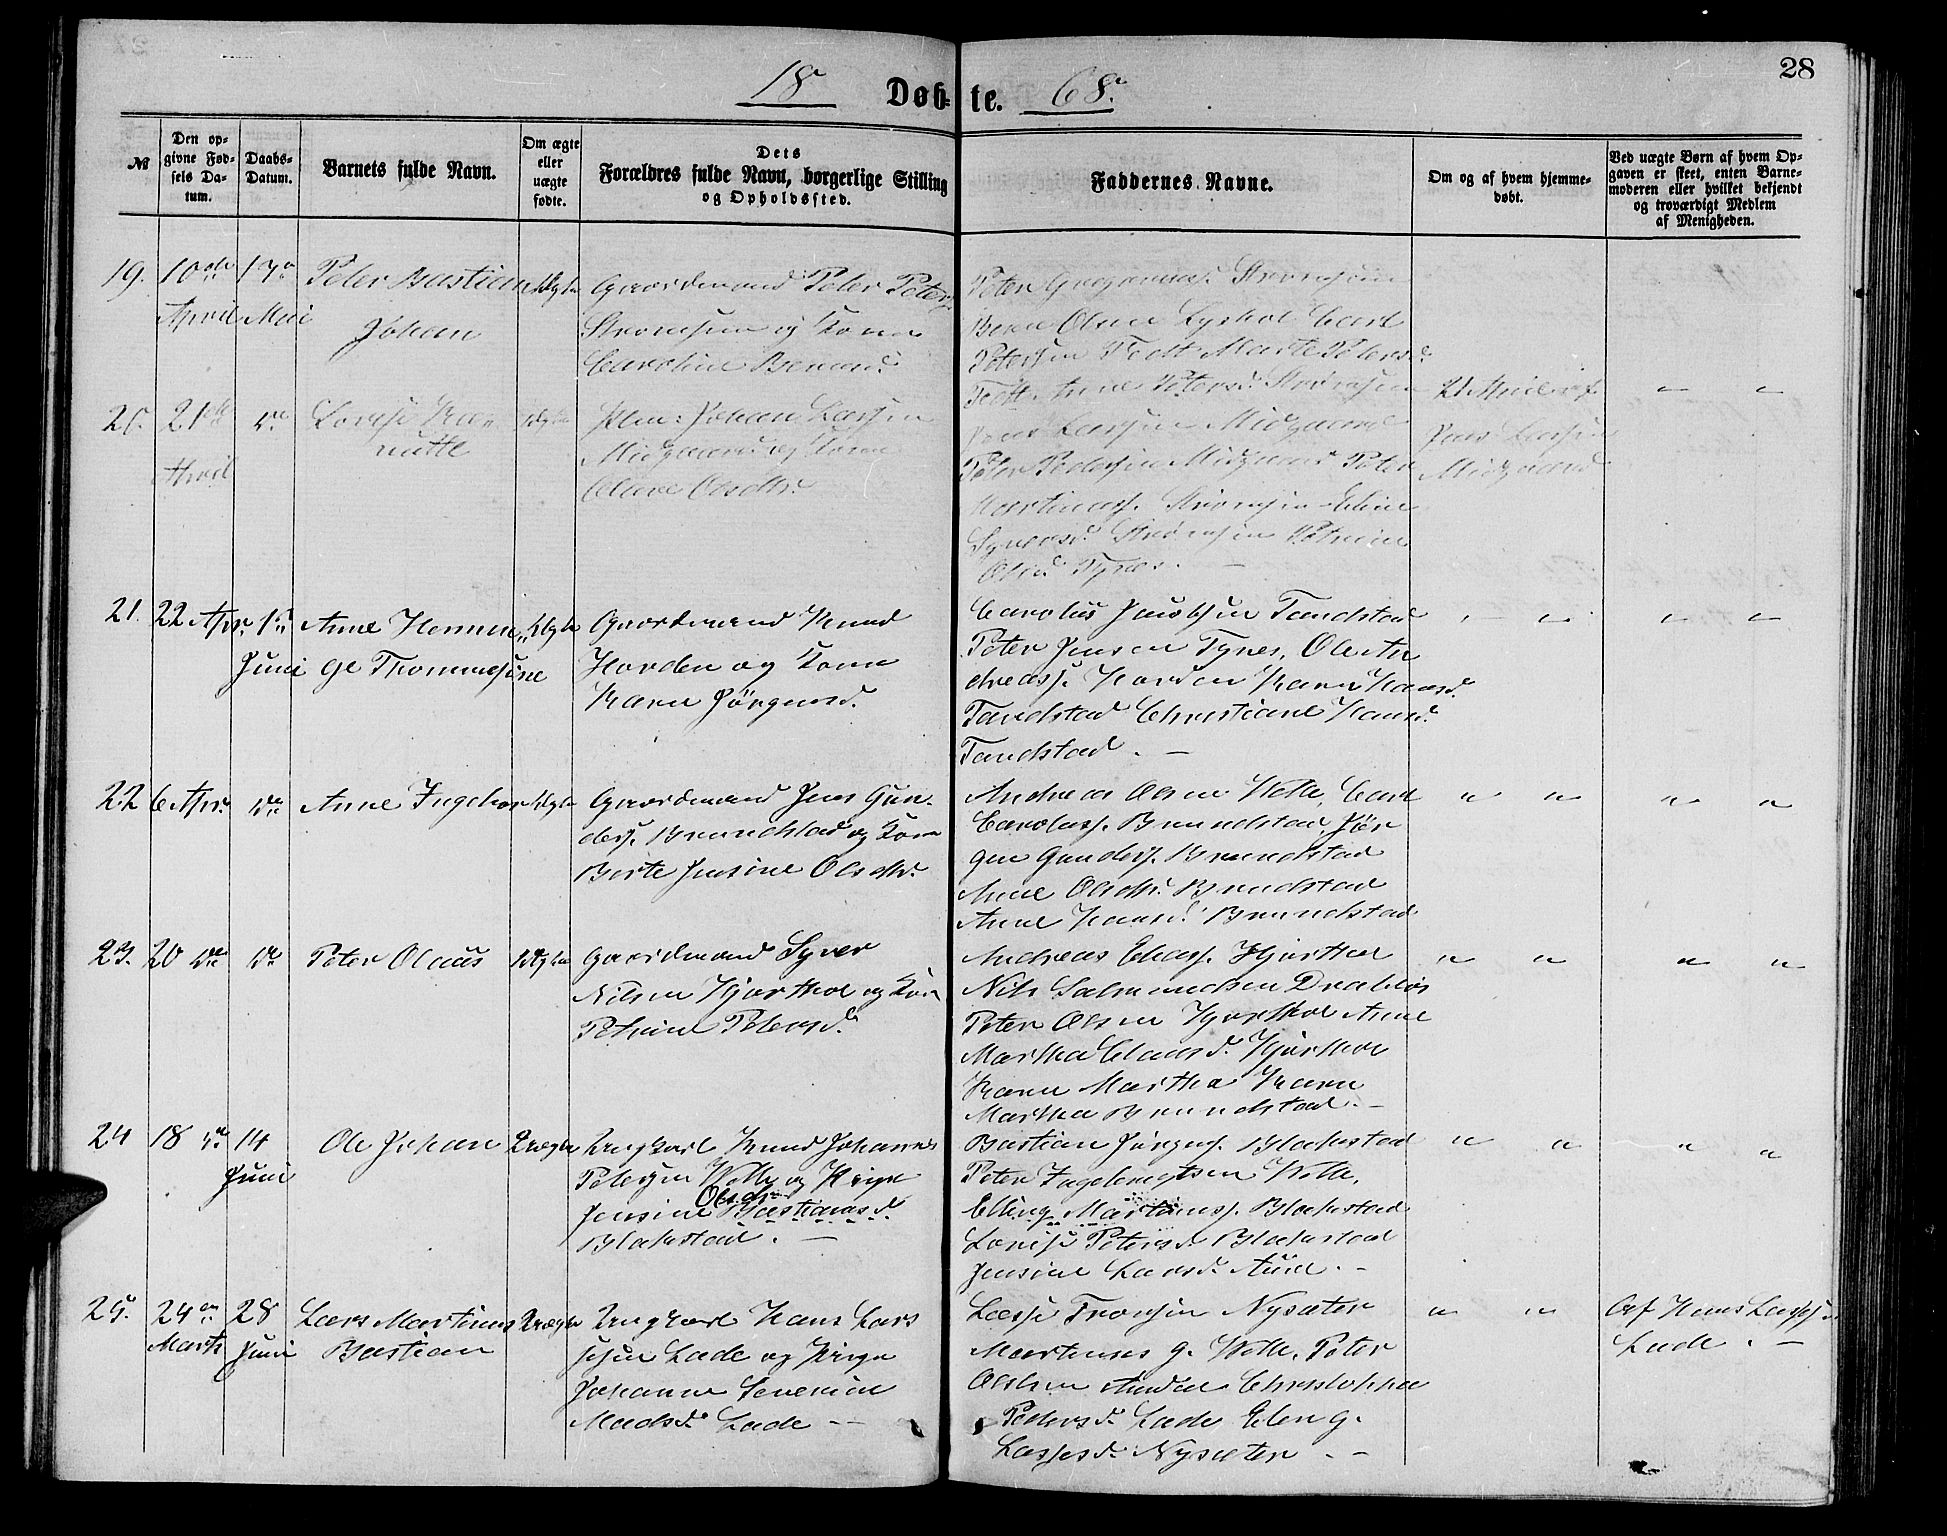 28
18 Døb- te. 68.
№
Den op-
givne Fød-
sels Da-
tum.
Daabs-
Datum.
Barnets fulde Navn.
Om ægte
eller
uægte
fødte.
Dets
Forældres fulde Navn, borgerlige Stilling
og Opholdssted.
Faddernes Navne.
Om og af hvem hjemme-
døbt.
Ved uægte Børn af hvem Op-
gaven er skeet, enten Barne-
moderen eller hvilket bekjendt
og troværdigt Medlem
af Menigheden.
19.
10de
April
17de
Mai
Peter Bastian
Johan
Ægte
Gaardmand Peter Peters.
Strømsem og Kone
Caroline Berensd.
Strømsem
Bern Olsen Lyshol Carl
Petersen Tott Marte Petersd.
Tott Anne Petersd. Strømsem
20.
21de
April
do
Lovise
nutte
Ægte
Johan Larsen
Midgaard og Kone
Olave Olsdtr.
21 April af
Jens Larsen
Midgaard
Jens Larsen Midgaard
Peter Pedersen Midgaard Peter
Martinuss. Strømsem Eline
Syversd. Strømsem Petrine
Olsd. Tynes. —
21.
22 Apr.
1ste
Juni
Anne Hennin-
ge Thommesine
Ægte
Gaardmand Knud
Horden og Kone
Karen Jørgensd.
Carolus Jacobsen Tandstad
Peter Jensen Tynes, Ole An
dreass. Horden Karen Hansd.
Tandstad Christiane Hansd.
Tandstad. —
22
6 Apr.
do
Anne Ingebor
Ægte
Gaardmand Jens Gun-
ders. Brundstad og Kone
Berte Jensine Olsdtr.
Andreas Olsen Welle, Carl
Caroluss. Brundstad, Jør
gen Gunders. Brundstad
Anne Olsdtr. Brundstad
Anne Hansd. Brundstad
23.
20 do
do
Peter Olaus
Ægte
Gaardmand Syver
Nilsen Hjorthol og Kone
Petrine Petersd.
Andreas Eliass. Hjorthol
Nils Salomundsen Drabløs
Peter Olsen Hjorthol Anne
Martha Clausd. Hjorthol
Karen Martha Karen
Martha Brundstad. —
24
18 do
14
Juni
Ole Johan
Uægte
Ungkarl Knud Johannes
Petersen Welle og Pige
Olsdr.
Jensine Bastiansd.
Blakstad. —
Bastian Jørgens. Blakstad
Peter Ingebrigtsen Welle,
Elling Martinuss. Blakstad
Lovise Petersd. Blakstad
Jensine Larsd. Aure. —
25.
24de
Marts
28
Juni
Lars Martinus
Bastian
Uægte
Ungkarl Hans Lars
sen Lade og Pige
Johanne Severine
Madsd. Lade —
Lasse Tronsen Nysæter
Martinus g. Welle, Peter
Olsen Christoppa
Pedersd. Lade Elen g.
Lassesd. Nysæter. —
Af Hans Lassen
Lade. —